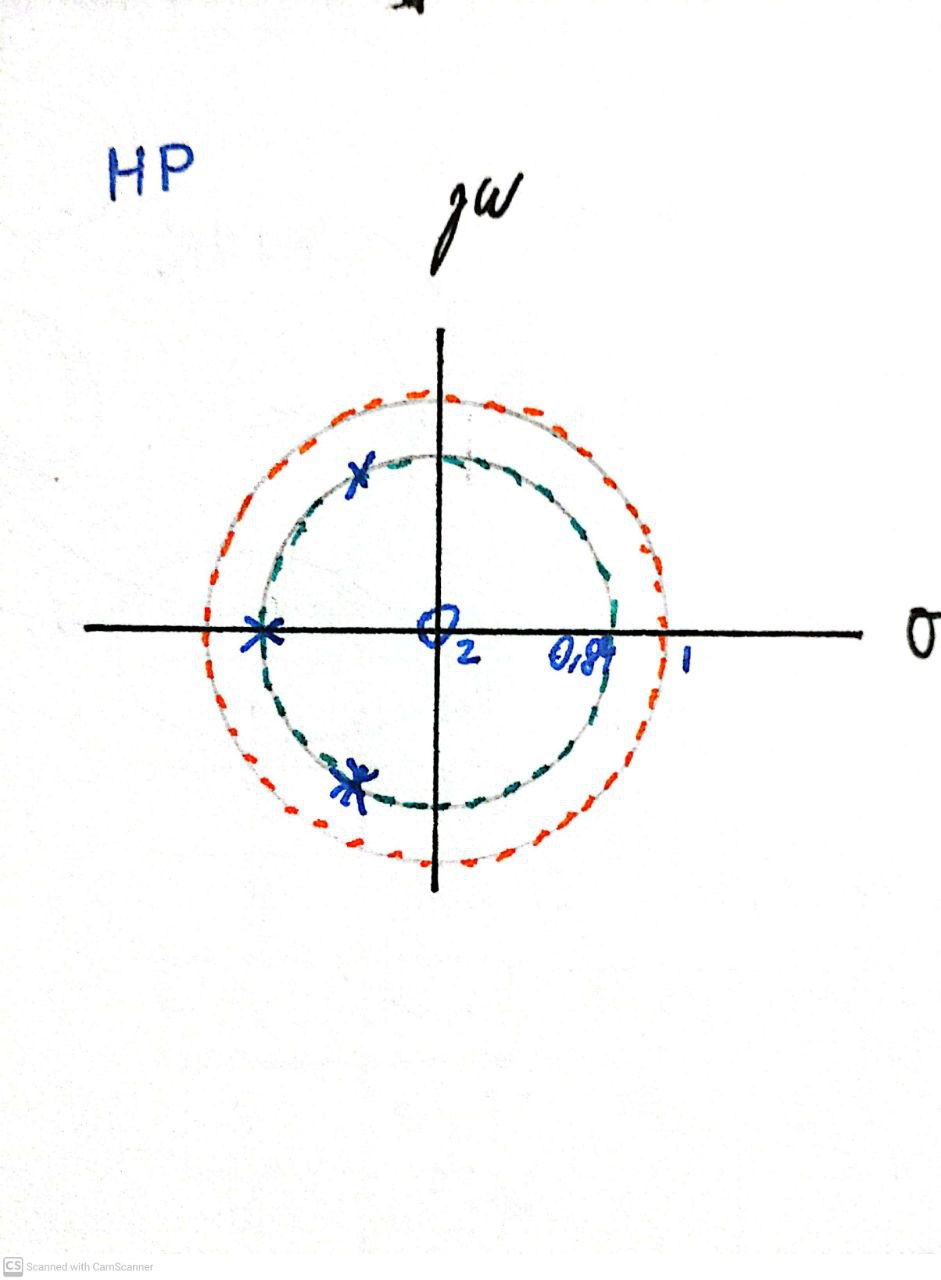 HP
jω
O 2 0,84 1 σ
CS Scanned with CamScanner